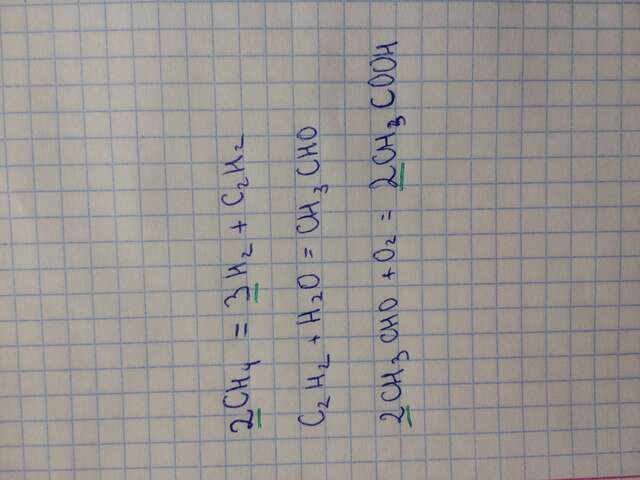 2CH₄ = 3H₂ + C₂H₂
C₂H₂ + H₂O = CH₃CHO
2CH₃CHO + O₂ = 2CH₃COOH